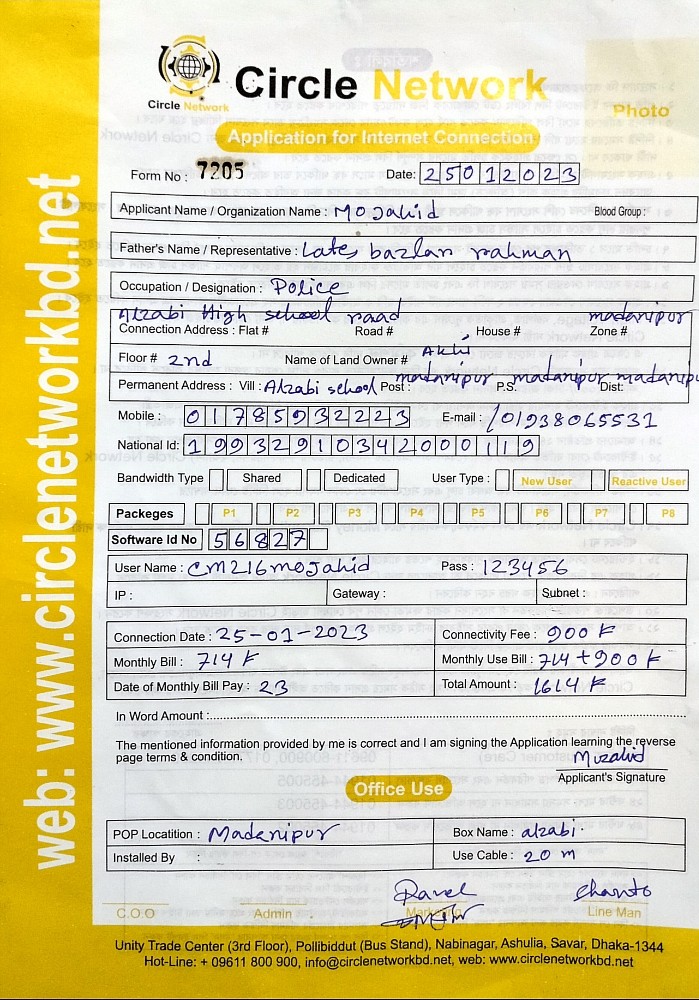 Circle Network
Circle Network
Photo
Application for Internet Connection
Form No : 7205 Date: 25012023
Applicant Name / Organization Name : Mojahid Blood Group :
Father's Name / Representative : Late, bazlar rahman
Occupation / Designation : Police
Alzabi High school road madanipur
Connection Address : Flat # Road # House # Zone #
Floor # 2nd Name of Land Owner # Akhi
Permanent Address : Vill : Alzabi school Post : madanipur P.S. madanipur Dist: madanipu
Mobile : 01785932223 E-mail : /01938065531
National Id: 19932910342000119
Bandwidth Type Shared Dedicated User Type : New User Reactive User
Packeges P1 P2 P3 P4 P5 P6 P7 P8
Software Id No 56827
User Name : cm216mojahid Pass : 123456
IP : Gateway : Subnet :
Connection Date : 25-01-2023 Connectivity Fee : 900 ৳
Monthly Bill : 714 ৳ Monthly Use Bill : 714+900 ৳
Date of Monthly Bill Pay : 23 Total Amount : 1614 ৳
In Word Amount :
The mentioned information provided by me is correct and I am signing the Application learning the reverse
page terms & condition. Muzahid
Applicant's Signature
Office Use
POP Locatition : Madanipur Box Name : alzabi.
Installed By : Use Cable : 20 m
Ravel Shanto
C.O.O Admin Marketing Line Man
Unity Trade Center (3rd Floor), Pollibiddut (Bus Stand), Nabinagar, Ashulia, Savar, Dhaka-1344
Hot-Line: + 09611 800 900, info@circlenetworkbd.net, web: www.circlenetworkbd.net
web: www.circlenetworkbd.net